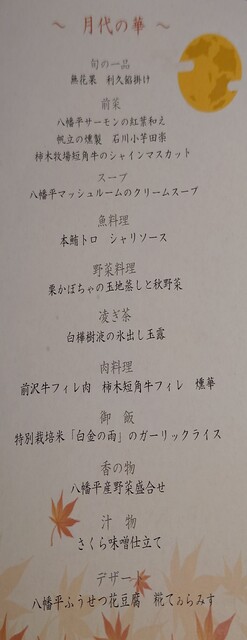 ～ 月代の華 ～
旬の一品
無花果 利久餡掛け
前菜
八幡平サーモンの紅葉和え
帆立の燻製 石川小芋田楽
柿木牧場短角牛のシャインマスカット
スープ
八幡平マッシュルームのクリームスープ
魚料理
本鮪トロ シャリソース
野菜料理
栗かぼちゃの玉地蒸しと秋野菜
凌ぎ茶
白樺樹液の水出し玉露
肉料理
前沢牛フィレ肉 柿木短角牛フィレ 燻華
御 飯
特別栽培米「白金の雨」のガーリックライス
香の物
八幡平産野菜盛合せ
汁 物
さくら味噌仕立て
デザート
八幡平ふうせつ花豆腐 糀てぃらみす